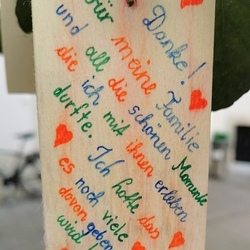 Danke!
für meine Familie
und all die schönen Momente
die ich mit ihnen erleben
durfte. Ich hoffe das
es noch viele
davon geben
wird!